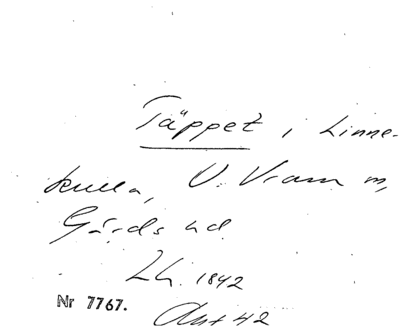 Täppet i Linne-
kulla, V. Vram m,
Gärds hd.
Lh. 1842
Nr 7767. Akt 42